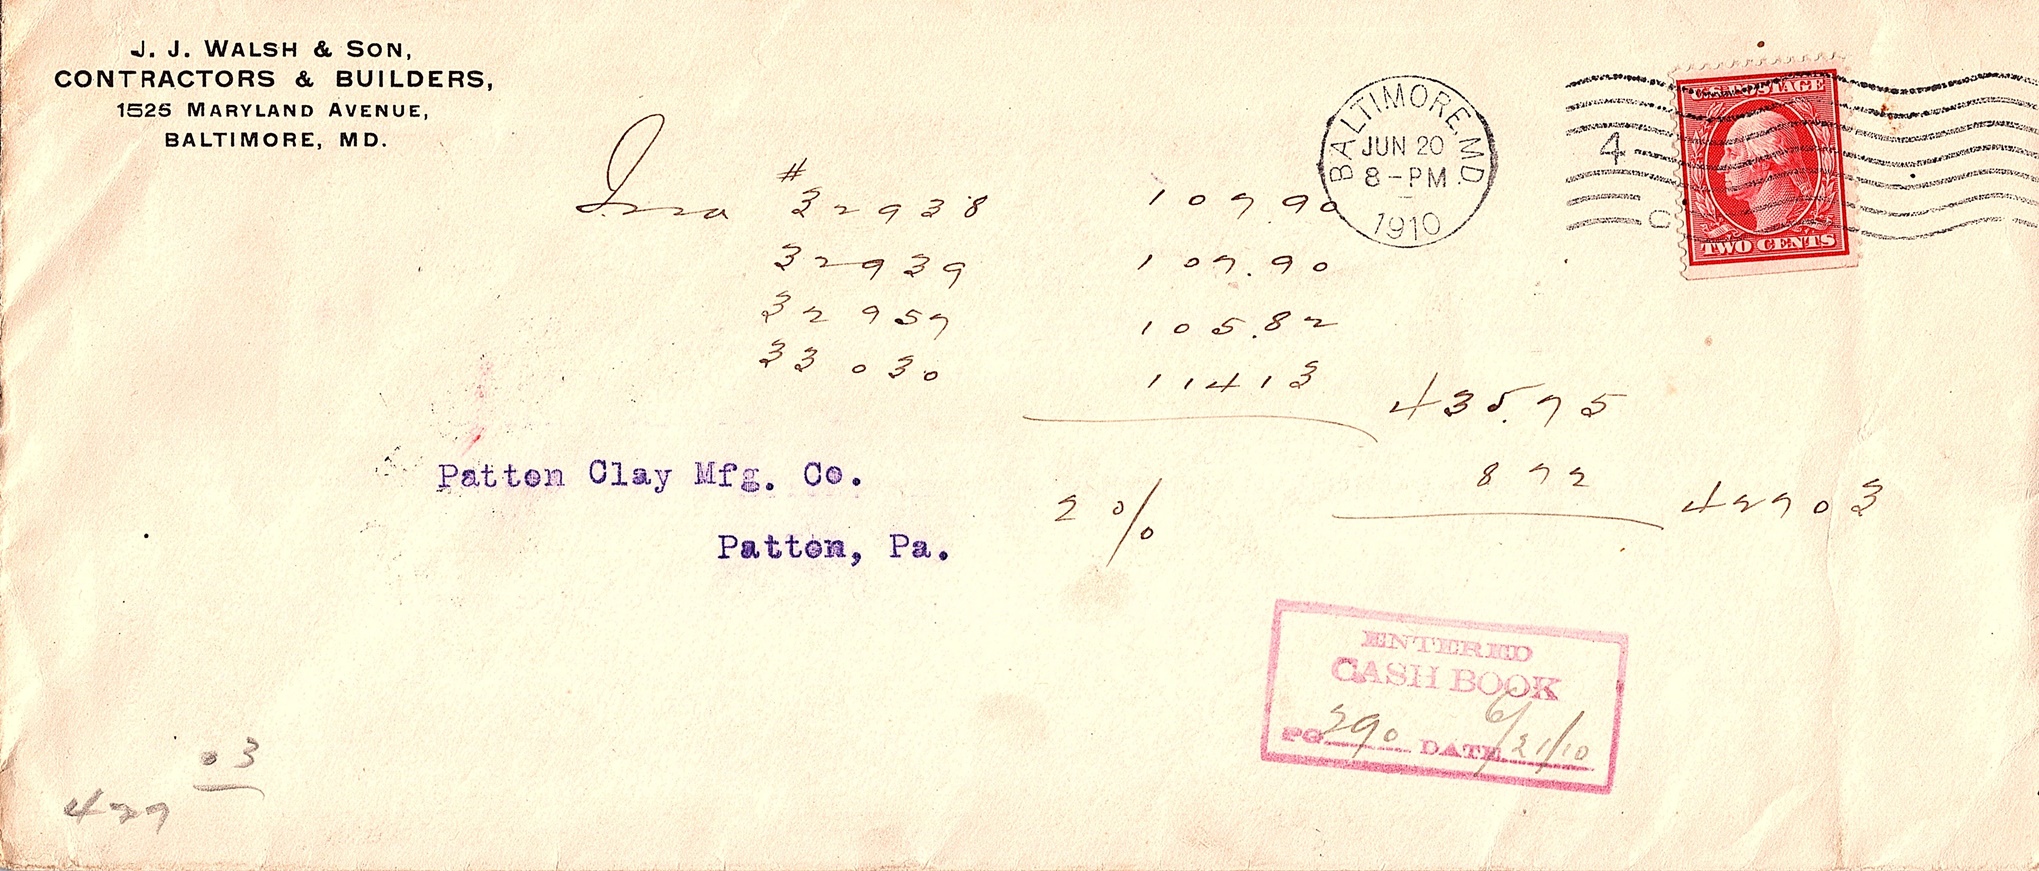 J. J. WALSH & SON,
CONTRACTORS & BUILDERS,
1525 MARYLAND AVENUE,
BALTIMORE, MD.
BALTIMORE, MD.
JUN 20
8-PM
1910
4
C
U.S. POSTAGE
TWO CENTS
# 32938 107.90
32939 107.90
32957 105.82
33030 11413 435.75
2% 872 42703
Patton Clay Mfg. Co.
Patton, Pa.
ENTERED
CASH BOOK
PG 290 DATE 6/21/10
03
427